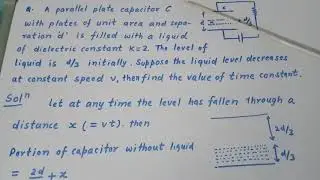 Q. A parallel plate capacitor C
with plates of unit area and sepa-
ration 'd' is filled with a liquid
of dielectric constant K=2. The level of
liquid is d/3 initially. Suppose the liquid level decreases
at constant speed v, then find the value of time constant.
Solⁿ let at any time the level has fallen through a
distance x (= vt). then
Portion of capacitor without liquid
= 2d/3 + x
C
d
2d/3
d/3